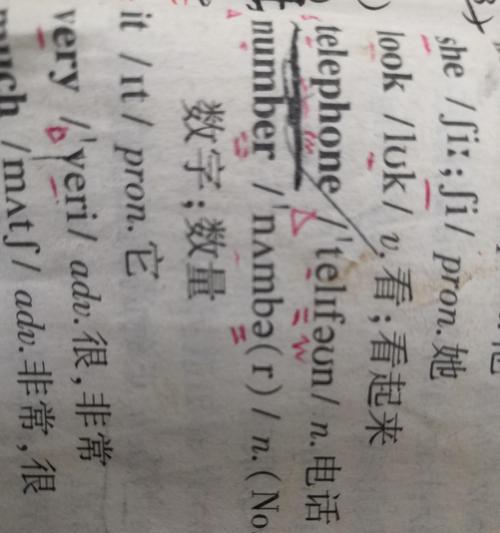 she /ʃiː; ʃi/ pron. 她
look /lʊk/ v. 看；看起来
telephone /ˈtelɪfəʊn/ n. 电话
number /ˈnʌmbə(r)/ n. (No
数字；数量
it /ɪt/ pron. 它
very /ˈveri/ adv. 很, 非常
much /mʌtʃ/ adv. 非常, 很